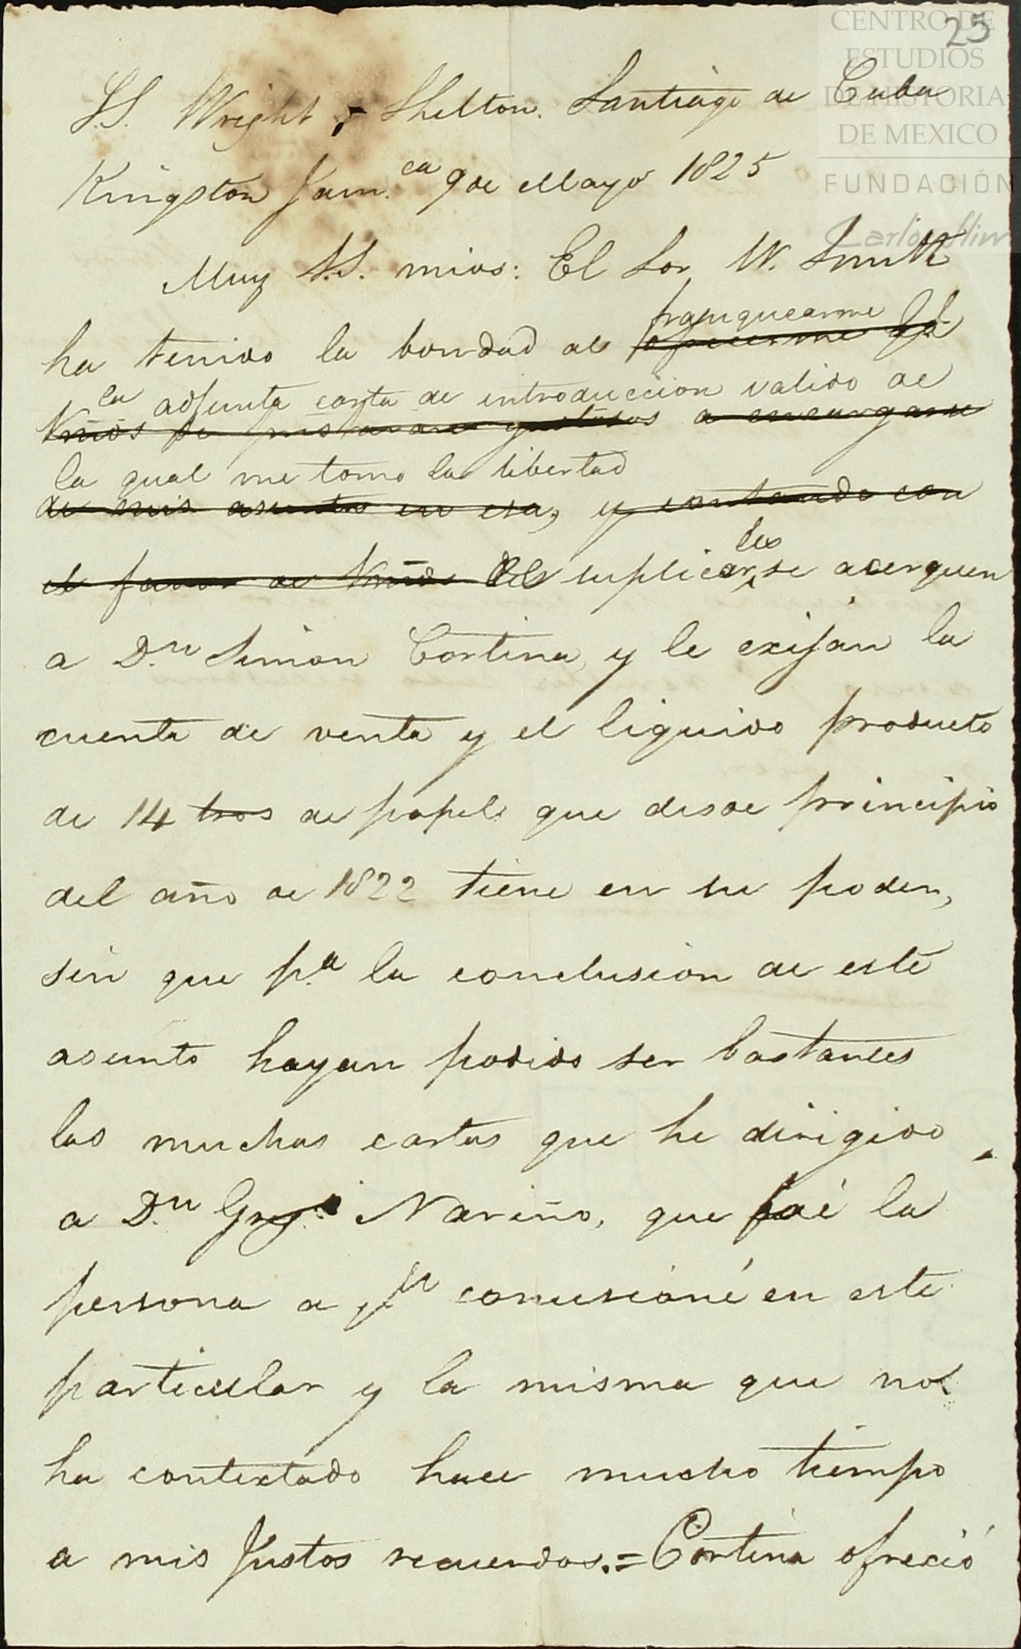 25
CENTRO DE
ESTUDIOS
DE HISTORIA
DE MEXICO
FUNDACIÓN
Carlos Slim
S.S. Wright y Shelton. Santiago de Cuba
Kingston Jam.ca 9 de Mayo 1825
Muy S.S. mios: El Sor W. Smith
franquearme
ha tenido la bondad de ofrecerme
la adjunta carta de introduccion valido de
gustosos a encargarse
la qual me tomo la libertad
de mis asuntos en esa, y contando con
les
el favor de suplicar, se acerquen
a D.n Simon Cortina, y le exijan la
cuenta de venta y el liquido producto
de 14 de papel que desde principio
del año de 1822 tiene en su poder,
sin que p.a la conclusion de este
asunto hayan podido ser bastantes
las muchas cartas que he dirigido
a D.n Greg.o Nariño, que fué la
persona a qn comisioné en este
particular y la misma que no
ha contextado hace mucho tiempo
a mis Justos recuerdos.= Cortina ofreció